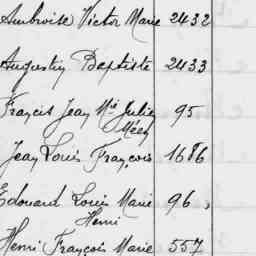 Ambroise Victor Marie 2432
Augustin Baptiste 2433
Francis Jean Mie Julien 95
Jean Louis François 1686
Edouard Louis Marie 96
Henri
Henri François Marie 557